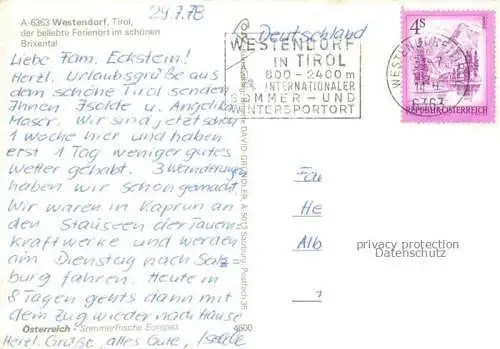 29.7.78
A-6363 Westendorf, Tirol,
der beliebte Ferienort im schönen
Brixental
Liebe Fam. Eckstein!
Herzl. Urlaubsgrüße aus
dem schöne Tirol senden
Ihnen Isolde u. Angelika
Maser. Wir sind jetzt schon
1 Woche hier und haben
erst 1 Tag weniger gutes
Wetter gehabt. 3 Wanderungen
haben wir schon gemacht.
Wir waren in Kaprun an
den Stauseen der Tauern-
kraftwerke und werden
am Dienstag nach Salz-
burg fahren. Heute in
8 Tagen gehts dann mit
dem Zug wieder nach Hause
Österreich - Sommerfrische Europas
4600
Herzl. Grüße, alles Gute, Isolde
DAVID GRÜNDLER, A-5013 Salzburg, Postfach 35
Deutschland
WESTENDORF
IN TIROL
800-2400m
INTERNATIONALER
SOMMER- UND
WINTERSPORTORT
WESTENDORF
6363
4S
REPUBLIK ÖSTERREICH
Fam
He
Alb
privacy protection
Datenschutz